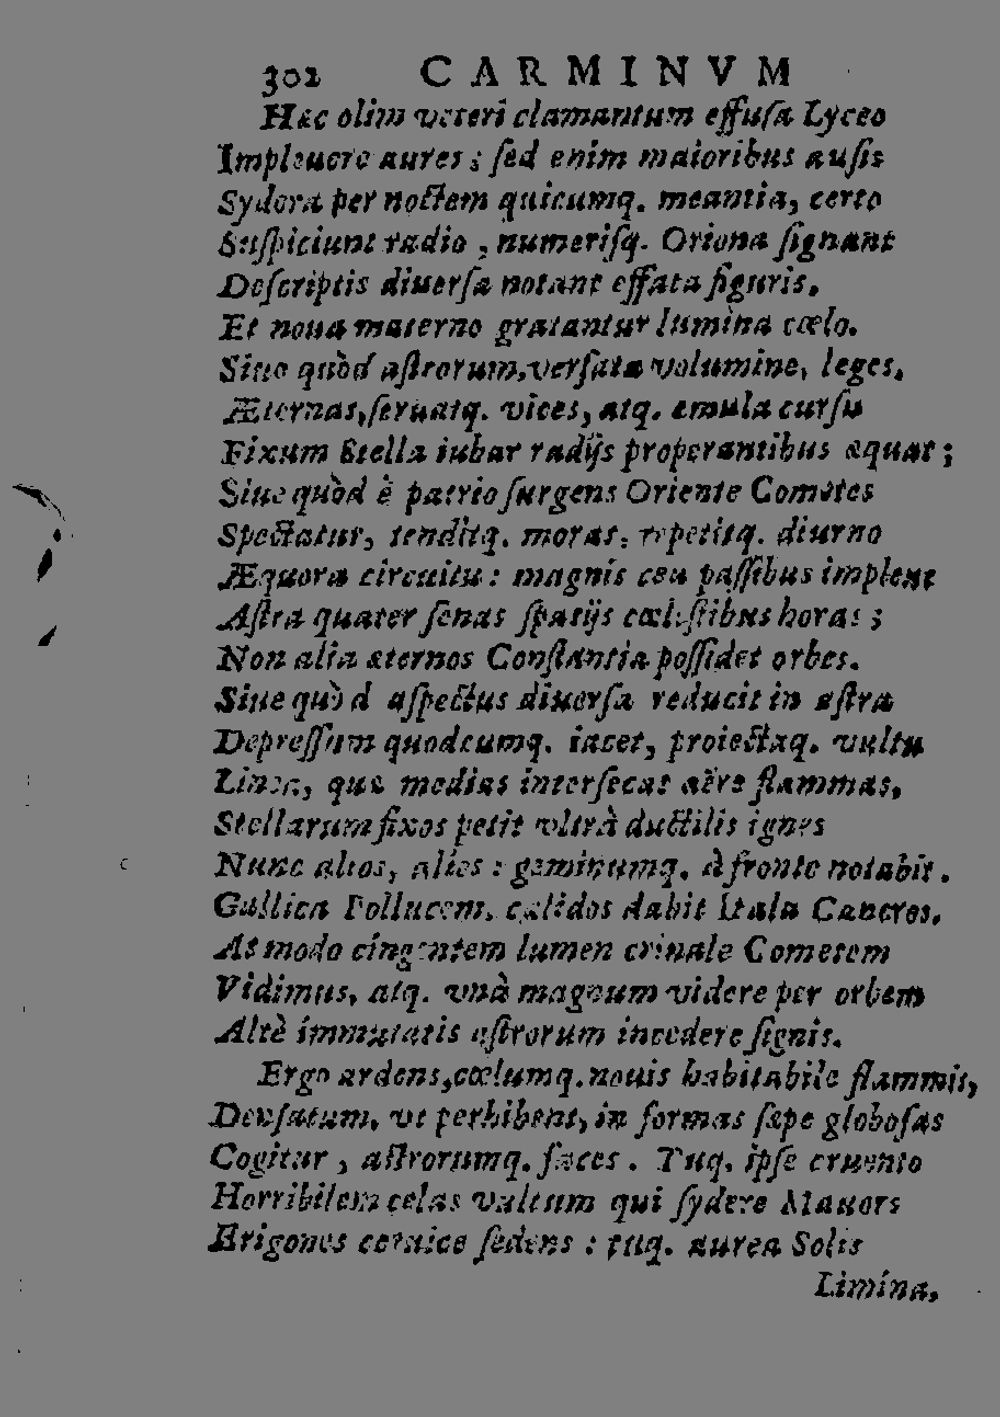 302 CARMINVM
Hæc olim veteri clamantum effuſa Lyceo
Impleuere aures; ſed enim maioribus auſis
Sydera per noctem quicumq. meantia, certo
Suſpiciunt radio, numeriſq. Oriona ſignant
Deſcriptis diuerſa notant effata figuris.
Et noua materno gratantur lumina cœlo.
Siue quòd aſtrorum, verſata volumine, leges.
Æternas, ſeruatq. vices, atq. emula curſu
Fixum Stella iubar radijs properantibus æquat;
Siue quòd è patrio ſurgens Oriente Cometes
Spectatur, tenditq. moras, repetitq. diurno
Æquora circuitu: magnis ceu paſſibus implent
Aſtra quater ſenas ſpatijs cœleſtibus horas;
Non alia æternos Conſtantia poſſidet orbes.
Siue quòd aſpectus diuerſa reducit in aſtra
Depreſſum quodcumq. iacet, proiectaq. vultu
Linea, quæ medias interſecat aëre flammas,
Stellarum fixos petit vltrà ductilis ignes
Nunc altos, alios: geminumq. à fronte notabit.
Gallica Pollucem, calidos dabit Itala Cancros.
At modo cingentem lumen crinale Cometem
Vidimus, atq. vnà magnum videre per orbem
Altè immutatis aſtrorum incedere ſignis.
Ergo ardens, cœlumq. nouis habitabile flammis,
Denſatum, vt perhibent, in formas ſæpe globoſas
Cogitur, aſtrorumq. faces. Tuq. ipſe cruento
Horribilem celas vultum qui ſydere Mauors
Erigones ceruice ſedens: tuq. aurea Solis
Limina,